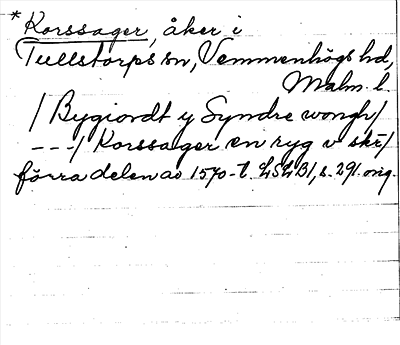 *Korssager, åker i
Tullstorps sn, Vemmenhögs hd,
Malm. l.
/ Bygiordt y Syndre wongh /
--- / Korssager en ryg v skr /
förra delen av 1570-t. LSLB1, s. 291. orig.